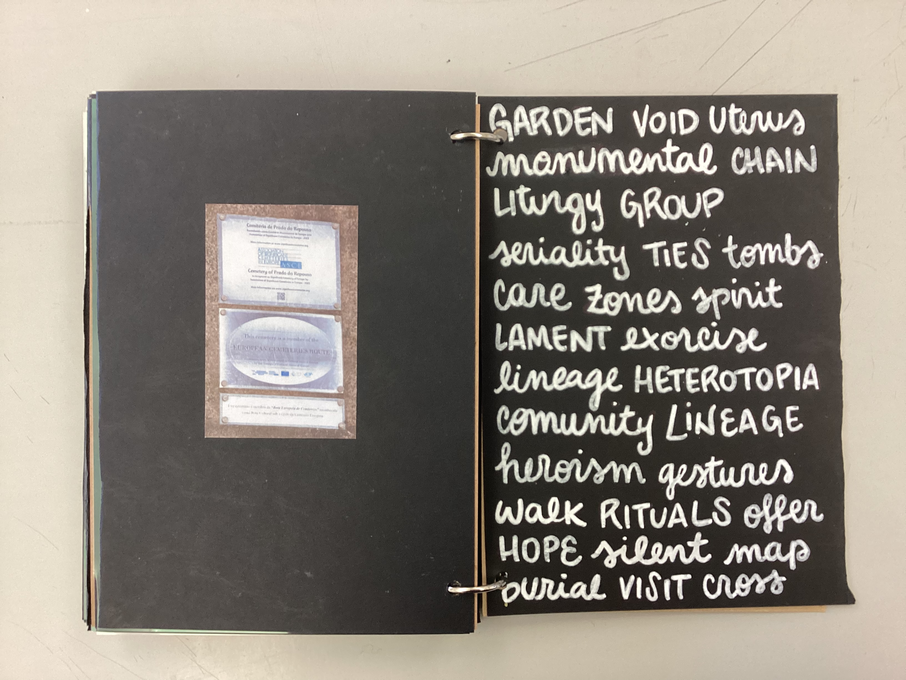 Cemitério do Prado do Repouso
Cemetery of Prado do Repouso
This cemetery is a member of the
EUROPEAN CEMETERIES ROUTE
GARDEN VOID Uterus
monumental CHAIN
Liturgy GROUP
seriality TIES tombs
care zones spirit
LAMENT exorcise
lineage HETEROTOPIA
comunity LINEAGE
heroism gestures
walk RITUALS offer
HOPE silent map
burial VISIT cross